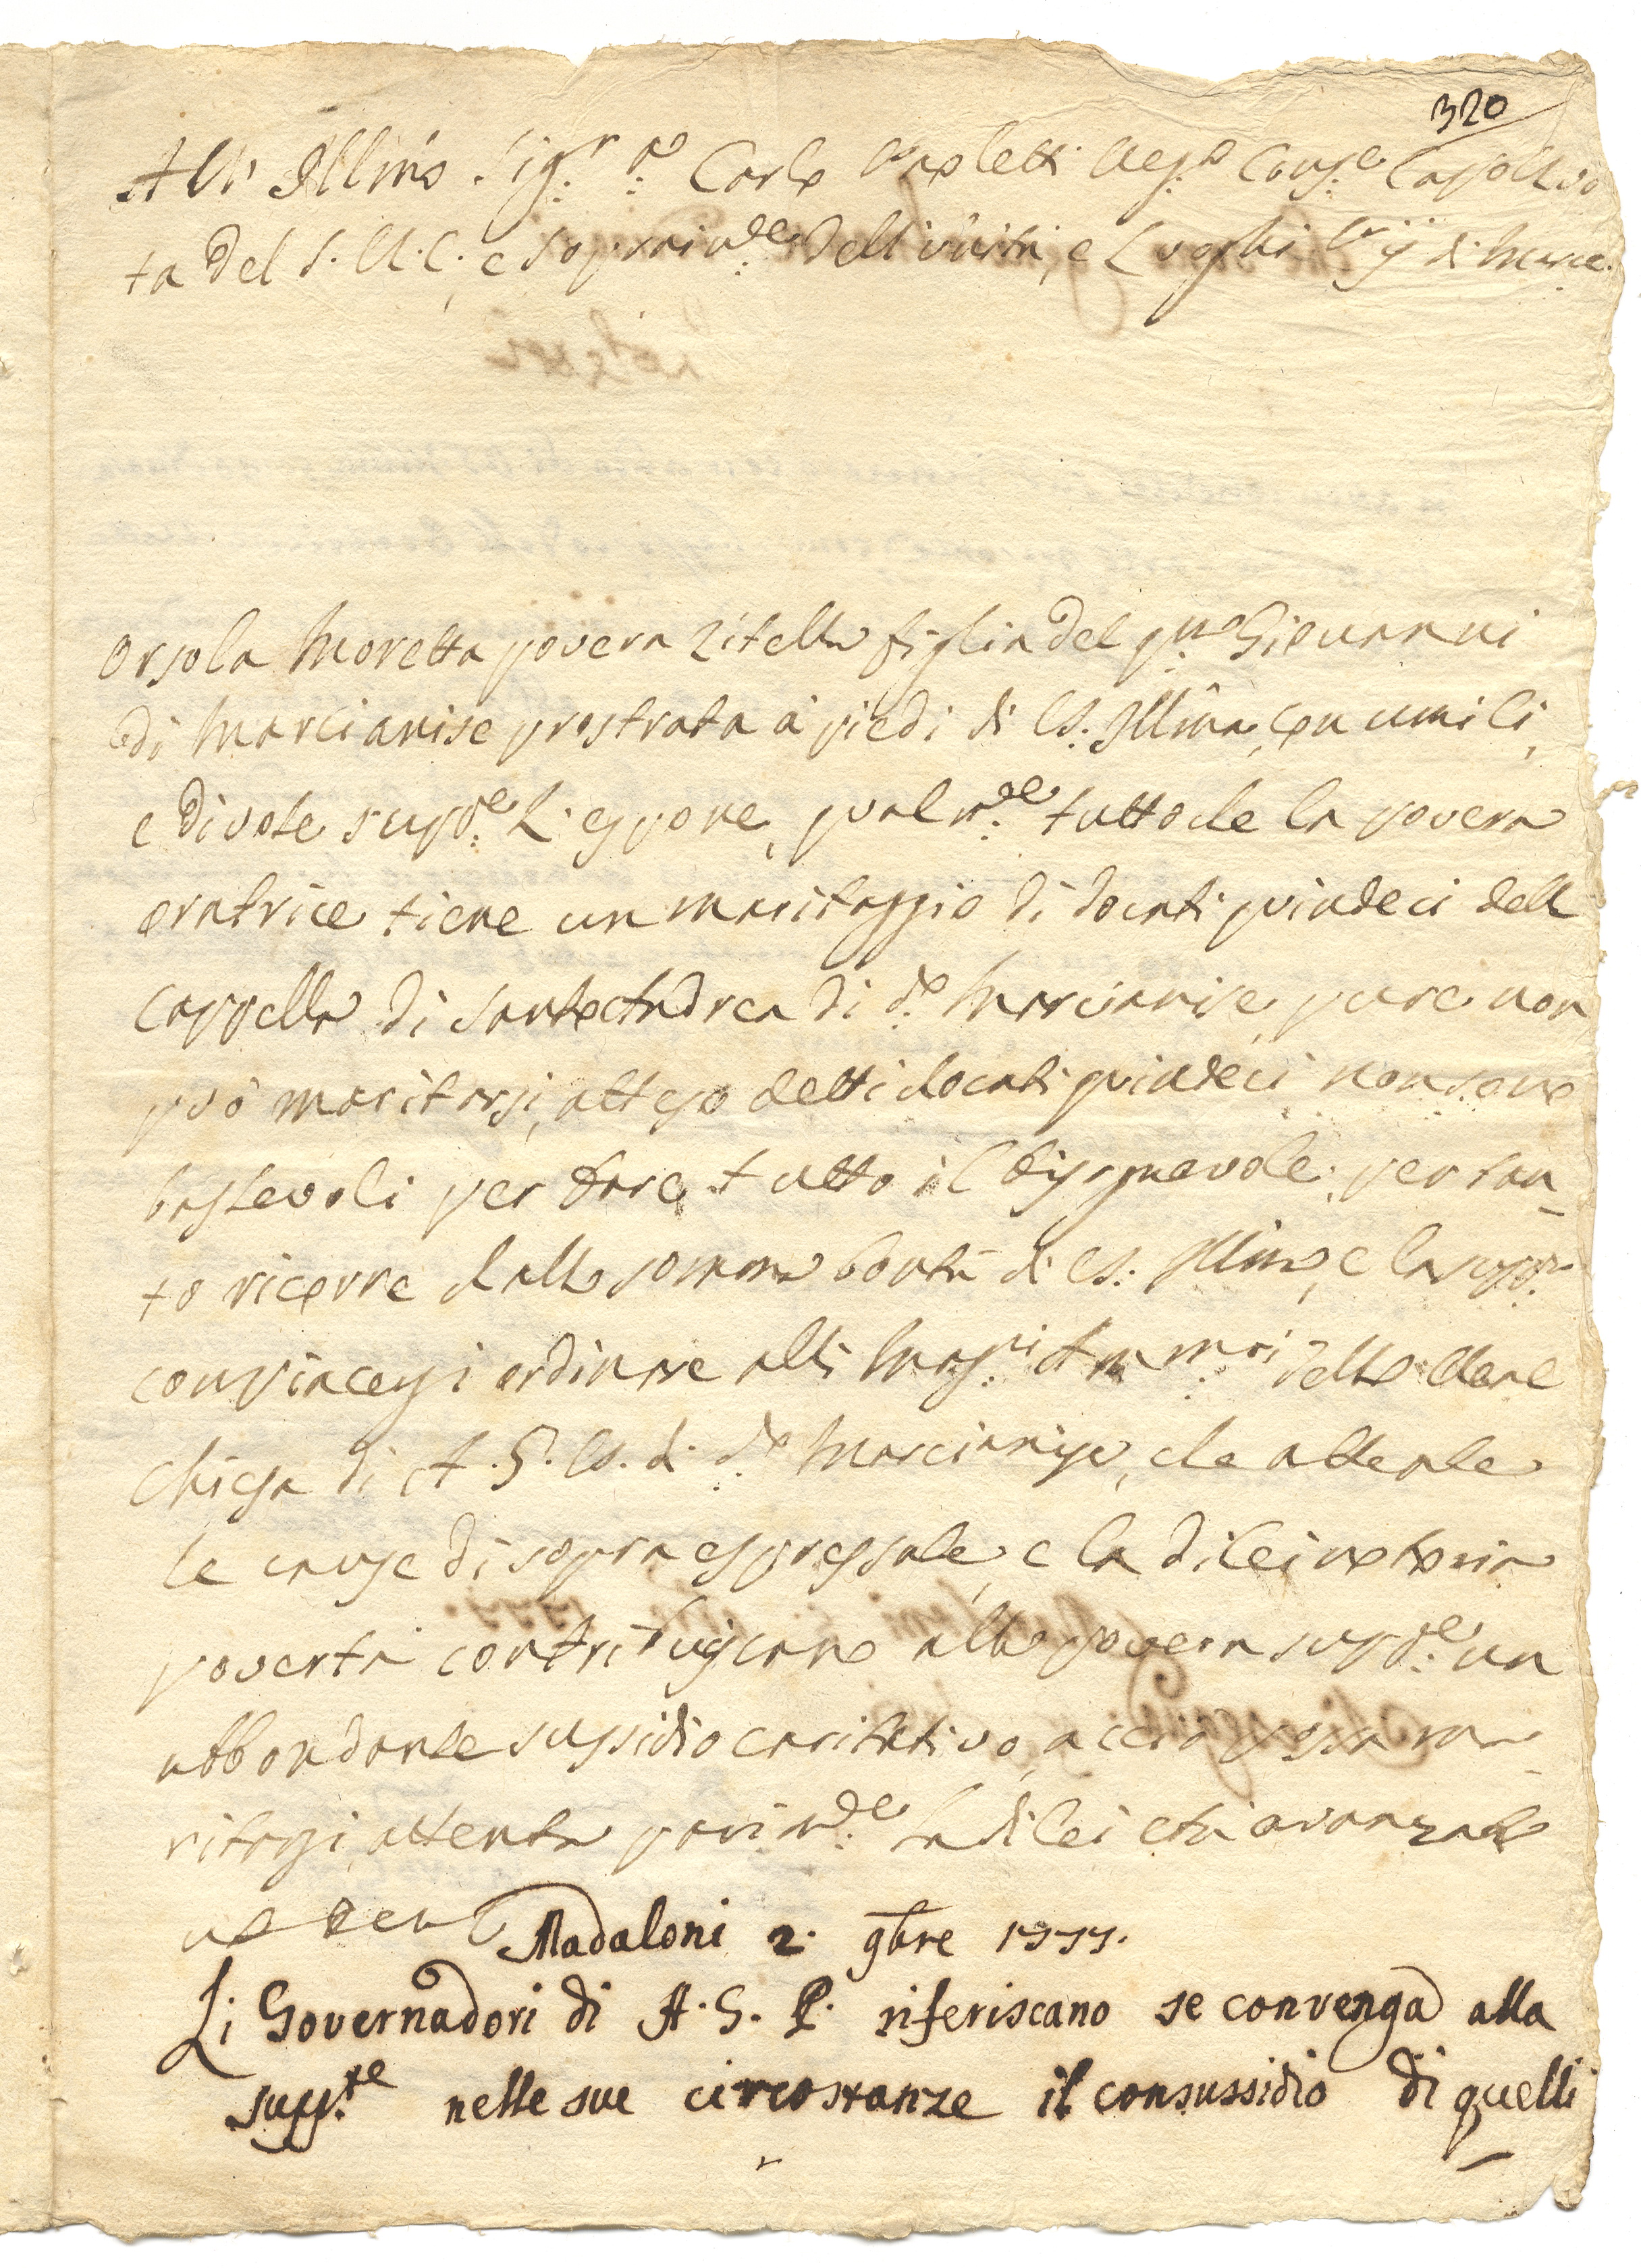 320
All' Illmo Sig.r D. Carlo Paoletti Reg.o Cons.e Caporuo
ta del S. R. C., e Soprain.de dell'Uniтà, e Luoghi Pij di Marc.
Orsola Moretta povera Zitella figlia del qm. Giovanni
di Marcianise prostrata a' piedi di VS. Illma, con umili,
e divote supp.e L'espone, qualm.te tutto che la povera
oratrice tiene un maritaggio di docati quindeci della
Cappella di Santo Andrea di d.o Marcianise, pure non
può maritarsi, atteso detti docati quindeci non sono
bastevoli per fare tutto il bisognevole; per tan-
to ricorre dalla somma bontà di VS. Illma, e la supp.
compiacersi ordinare alli Mag.ci Amm.ri della Vene
Chiesa di A. G. P. di d.o Marcianise, che attente
le cause di sopra espressate, e la di lei notoria
povertà contribuiscano alla povera supp.te un
abbondante sussidio caritativo, acciò possa ma-
ritarsi, attenta parim.te la di lei età avanzata
ut Deus
Madaloni 2. 9bre 1777.
Li Governadori di A. G. P. riferiscano se convenga alla
supp.te nelle sue circostanze il consussidio di quelli